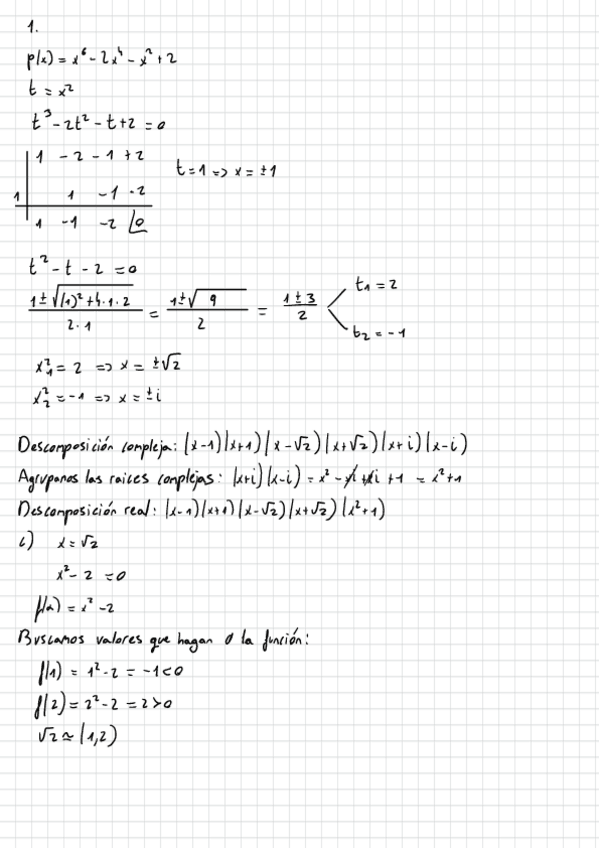 1.
p(x) = x⁶ - 2x⁴ - x² + 2
t = x²
t³ - 2t² - t + 2 = 0
1 - 2 - 1 + 2
t = 1 => x = ±1
1 1 -1 -2
1 -1 -2 |0
t² - t - 2 = 0
(1 ± √((1)² + 4·1·2)) / (2·1) = (1 ± √9) / 2 = (1 ± 3) / 2
t₁ = 2
t₂ = -1
x₁² = 2 => x = ±√2
x₂² = -1 => x = ±i
Descomposición compleja: (x-1)(x+1)(x-√2)(x+√2)(x+i)(x-i)
Agrupanos las raices complejas: (x+i)(x-i) = x² - xi + xi + 1 = x² + 1
Descomposición real: (x-1)(x+1)(x-√2)(x+√2)(x²+1)
c) x = √2
x² - 2 = 0
f(x) = x² - 2
Buscamos valores que hagan 0 la función:
f(1) = 1² - 2 = -1 < 0
f(2) = 2² - 2 = 2 > 0
√2 ≃ (1,2)